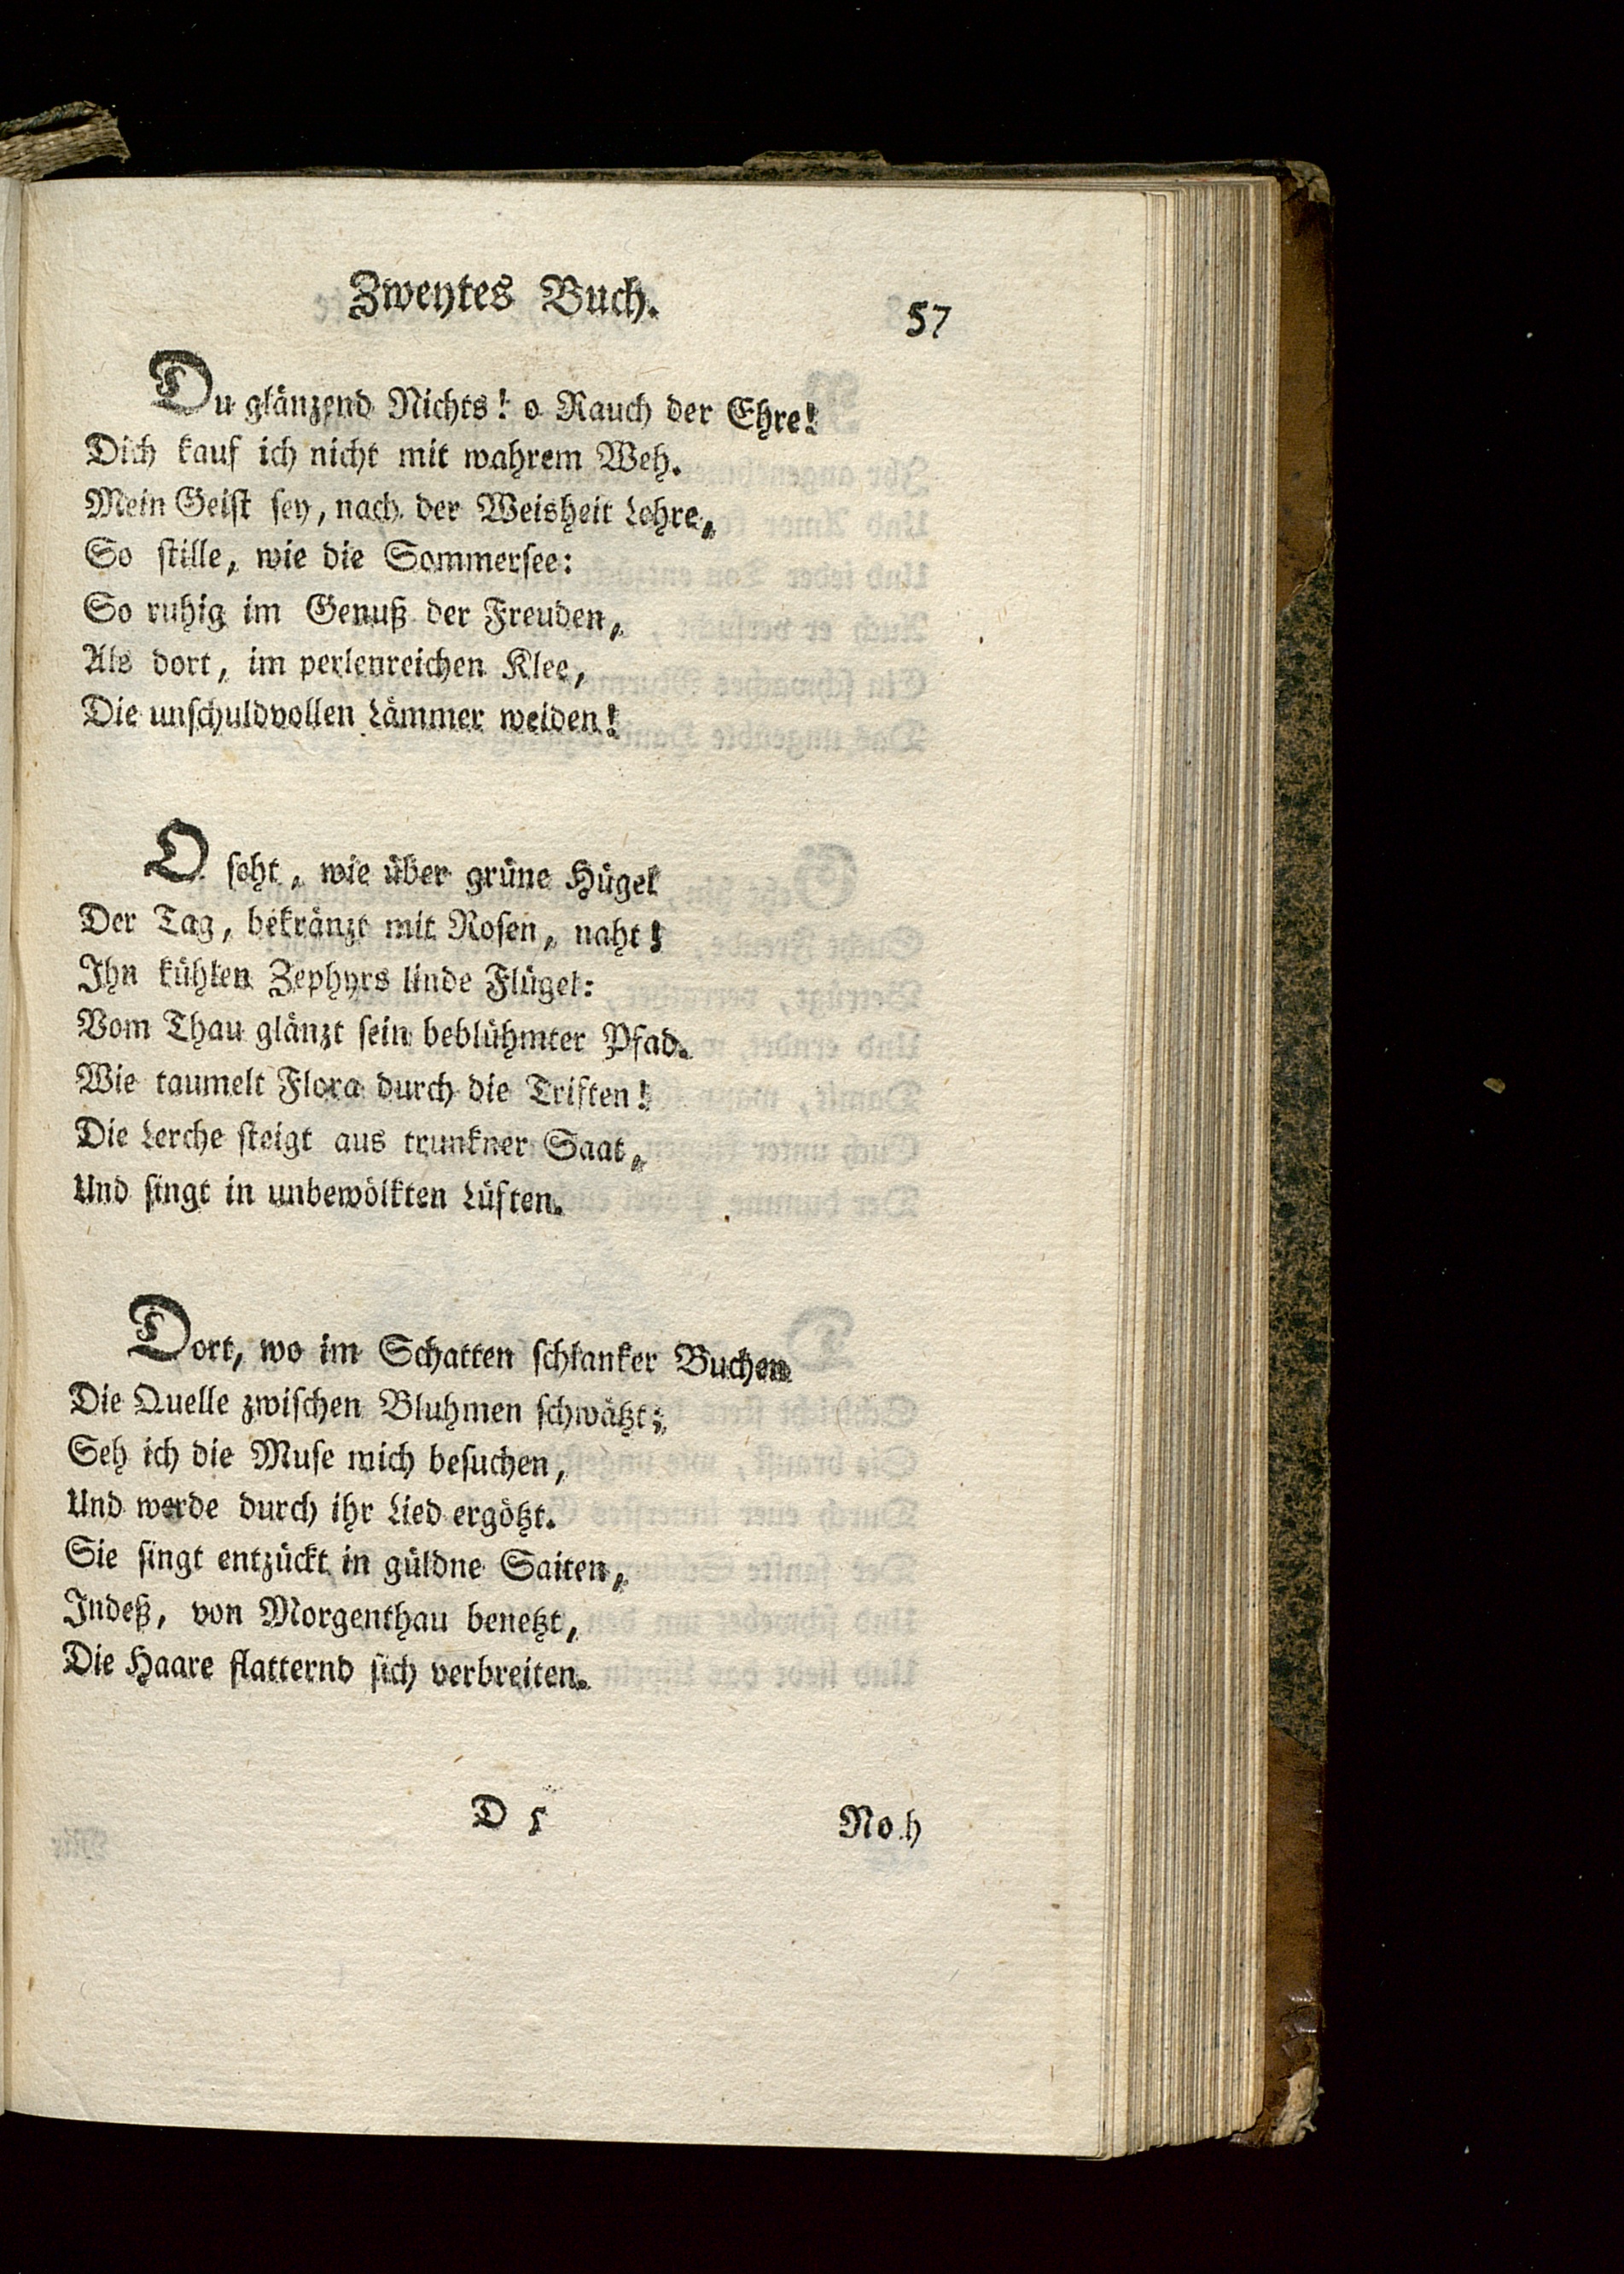 Zweytes Buch.
57
Du glänzend Nichts! o Rauch der Ehre!
Dich kauf ich nicht mit wahrem Weh.
Mein Geist sey, nach der Weisheit Lehre,
So stille, wie die Sommersee:
So ruhig im Genuß der Freuden,
Als dort, im perlenreichen Klee,
Die unschuldvollen Lämmer weiden!
O seht, wie über grüne Hügel
Der Tag, bekränzt mit Rosen, naht!
Ihn kühlen Zephyrs linde Flügel:
Vom Thau glänzt sein beblühmter Pfad.
Wie taumelt Flora durch die Triften!
Die Lerche steigt aus trunkner Saat,
Und singt in unbewölkten Lüften.
Dort, wo im Schatten schlanker Buchen
Die Quelle zwischen Bluhmen schwätzt;
Seh ich die Muse mich besuchen,
Und werde durch ihr Lied ergötzt.
Sie singt entzückt in güldne Saiten,
Indeß, von Morgenthau benetzt,
Die Haare flatternd sich verbreiten.
D 5
No h